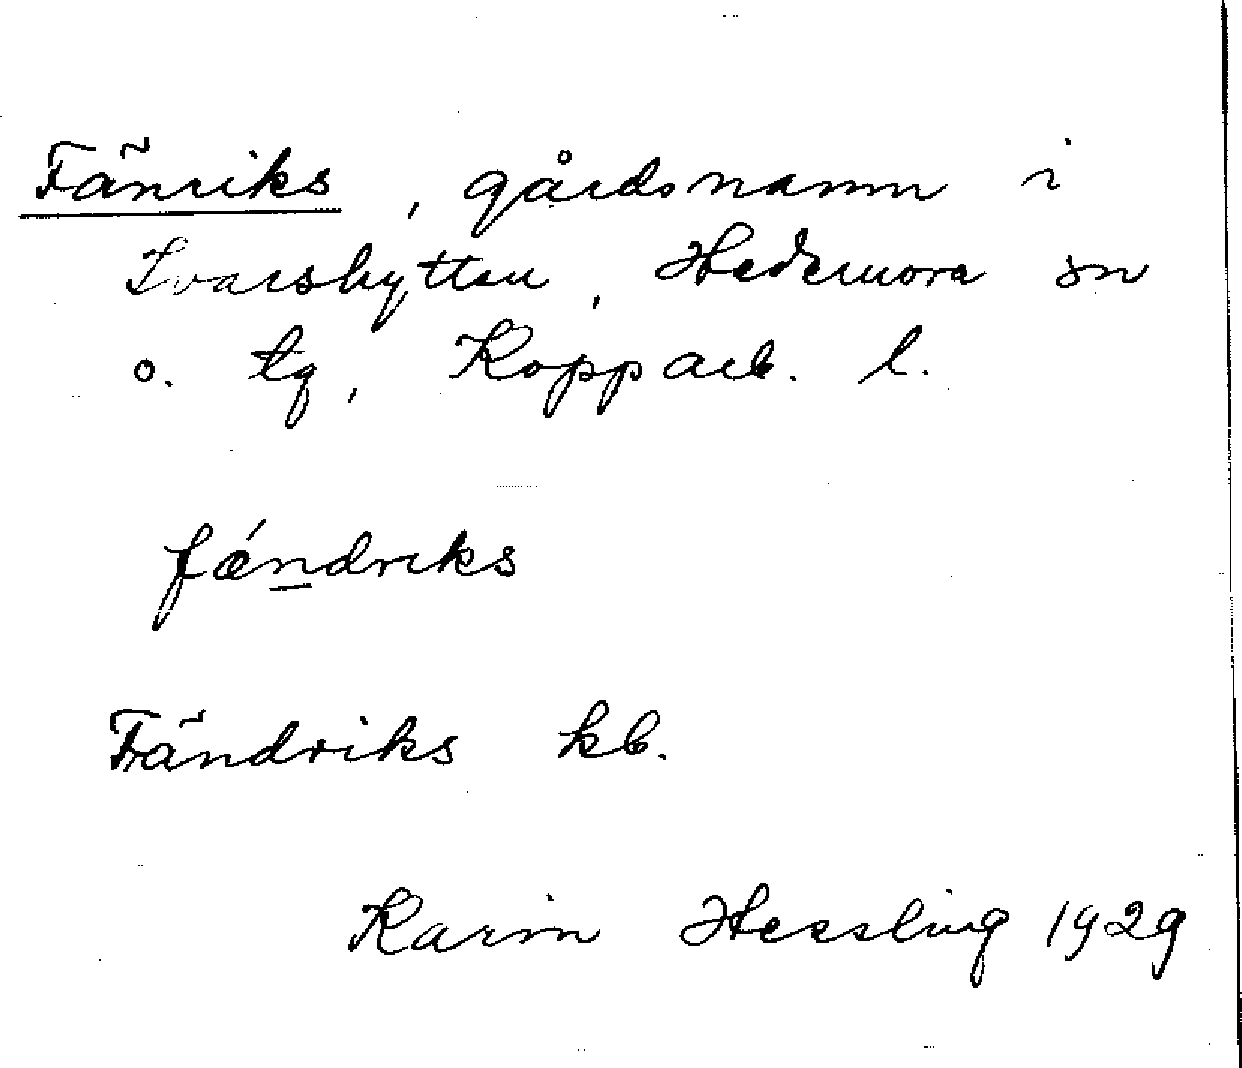 Fänriks, gårdsnamn i
Ivarshyttan, Hedemora sn
o. tg, Kopparb. l.
fǽndriks
Fändriks kb.
Karin Hessling 1929